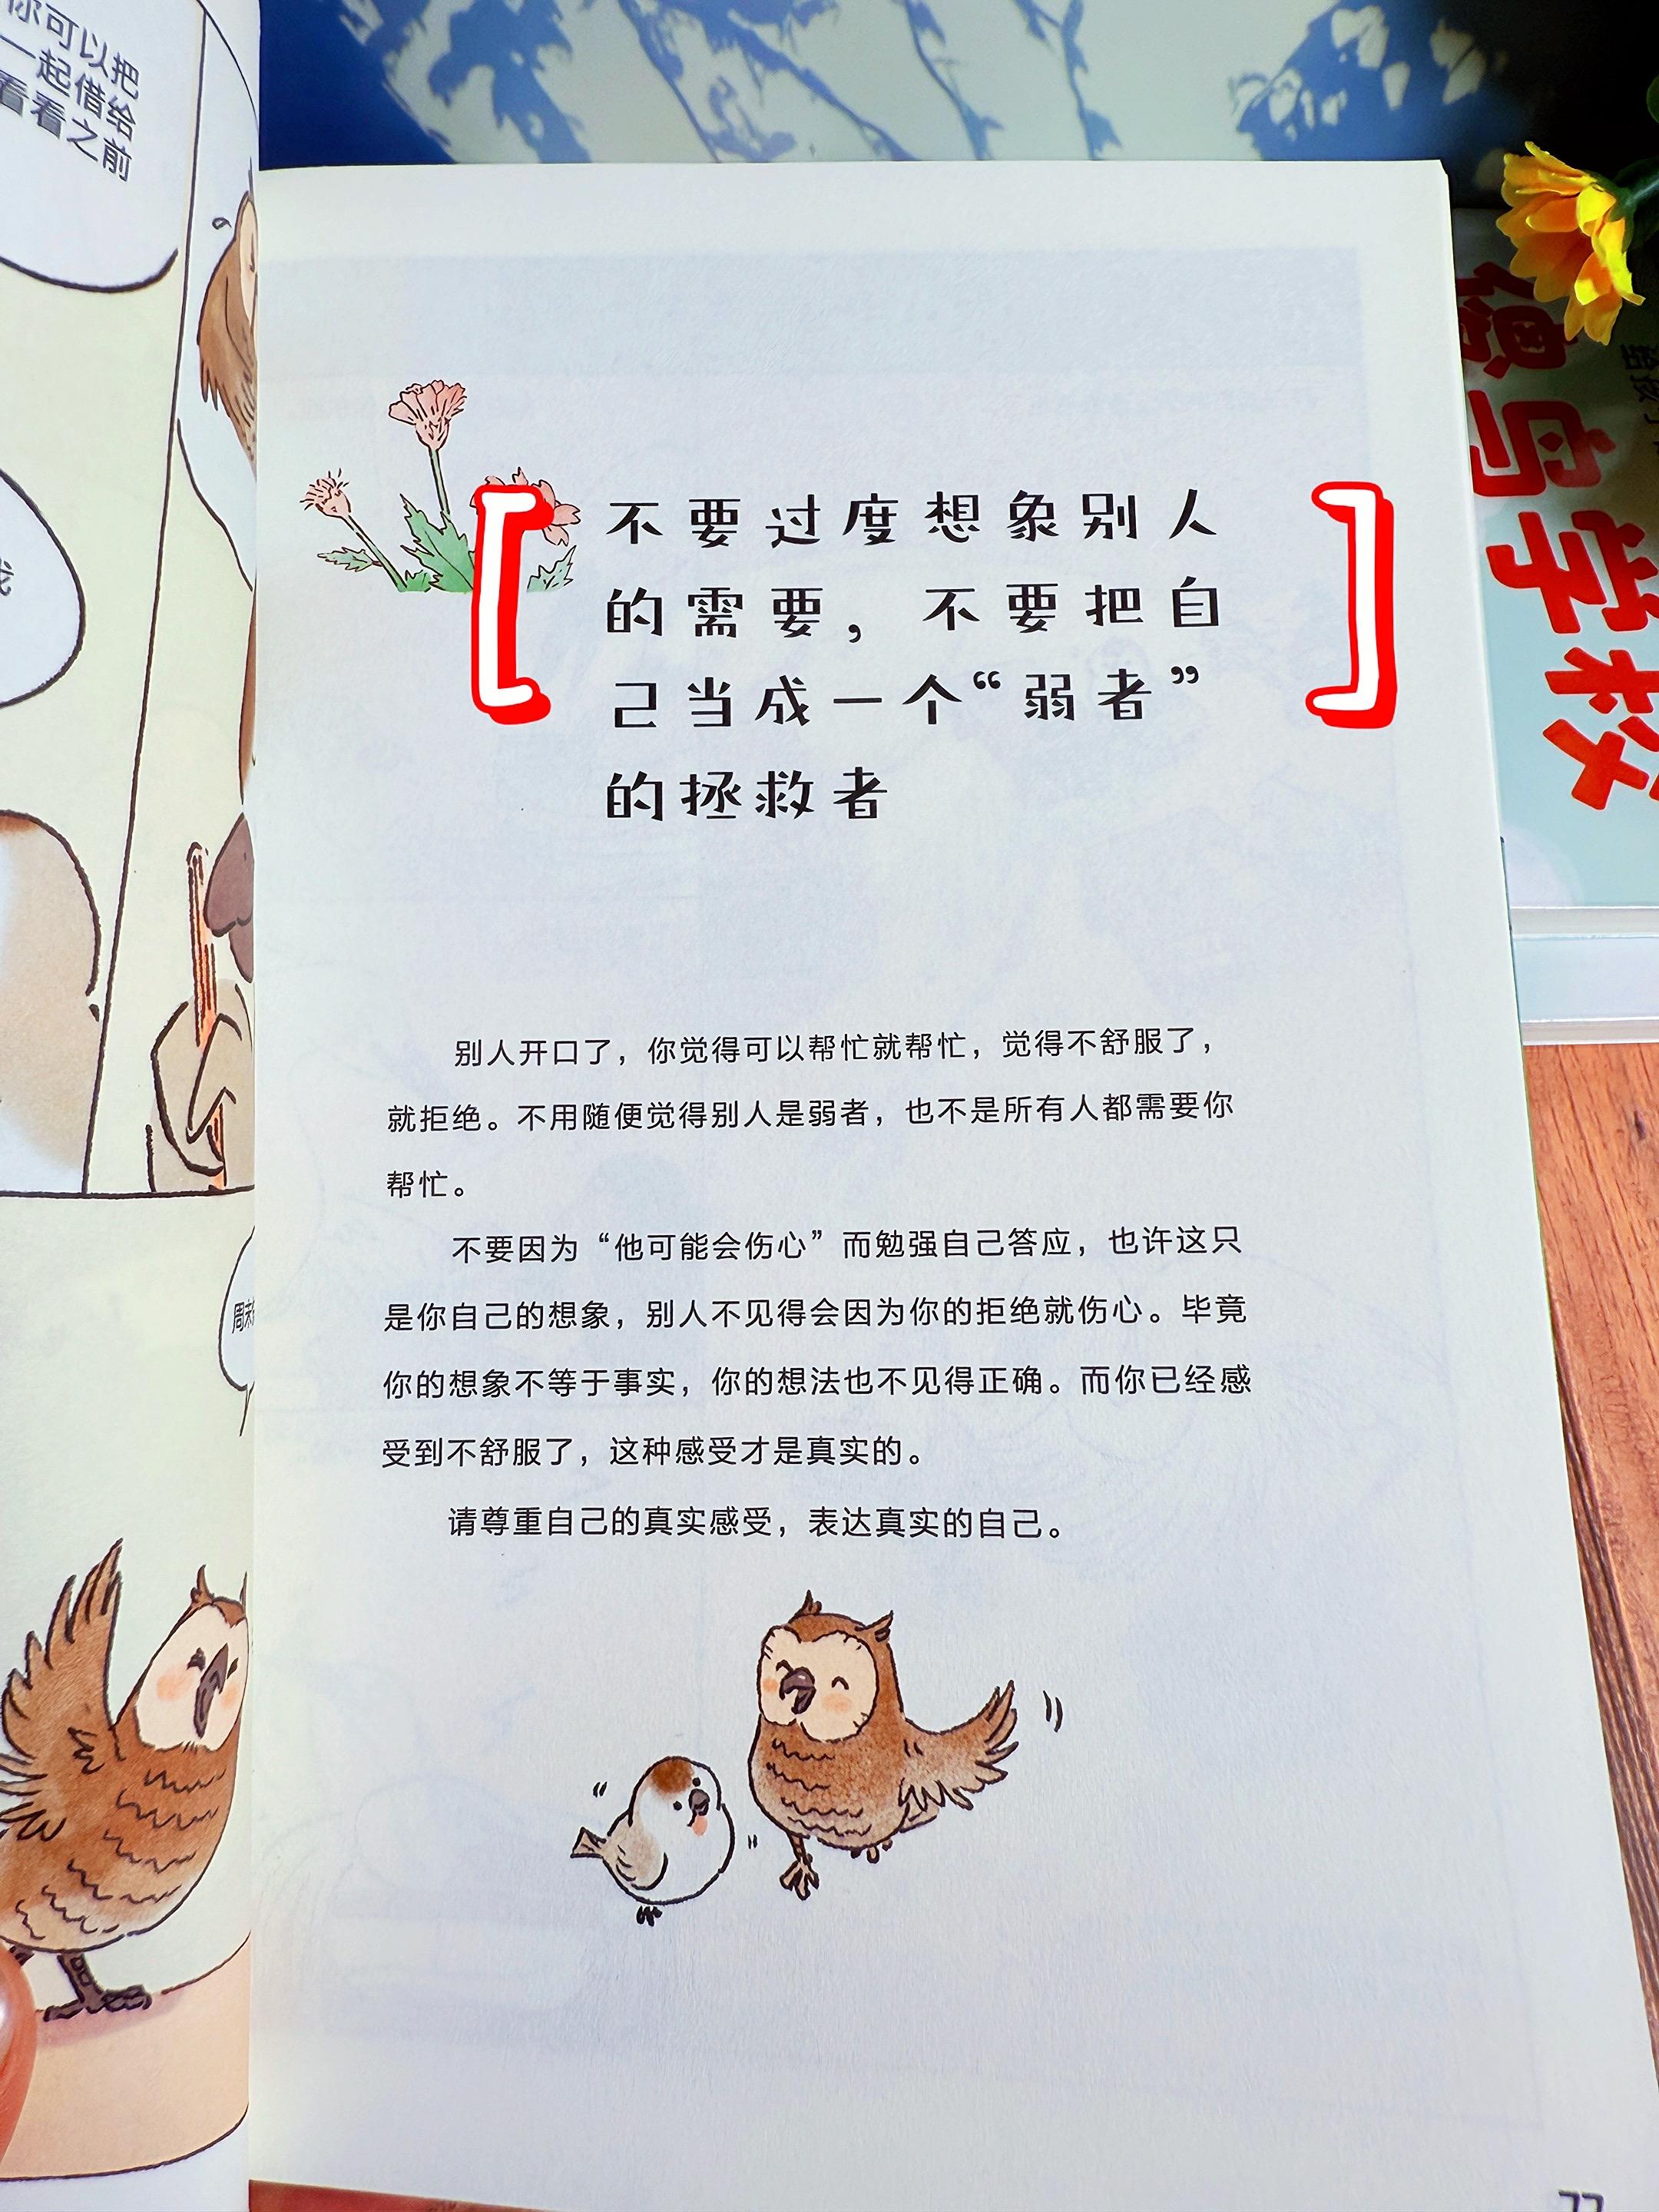 你可以把
一起借给
看看之前
不要过度想象别人
的需要，不要把自
己当成一个“弱者”
的拯救者
别人开口了，你觉得可以帮忙就帮忙，觉得不舒服了，
就拒绝。不用随便觉得别人是弱者，也不是所有人都需要你
帮忙。
不要因为“他可能会伤心”而勉强自己答应，也许这只
是你自己的想象，别人不见得会因为你的拒绝就伤心。毕竟
你的想象不等于事实，你的想法也不见得正确。而你已经感
受到不舒服了，这种感受才是真实的。
请尊重自己的真实感受，表达真实的自己。
鸟学校